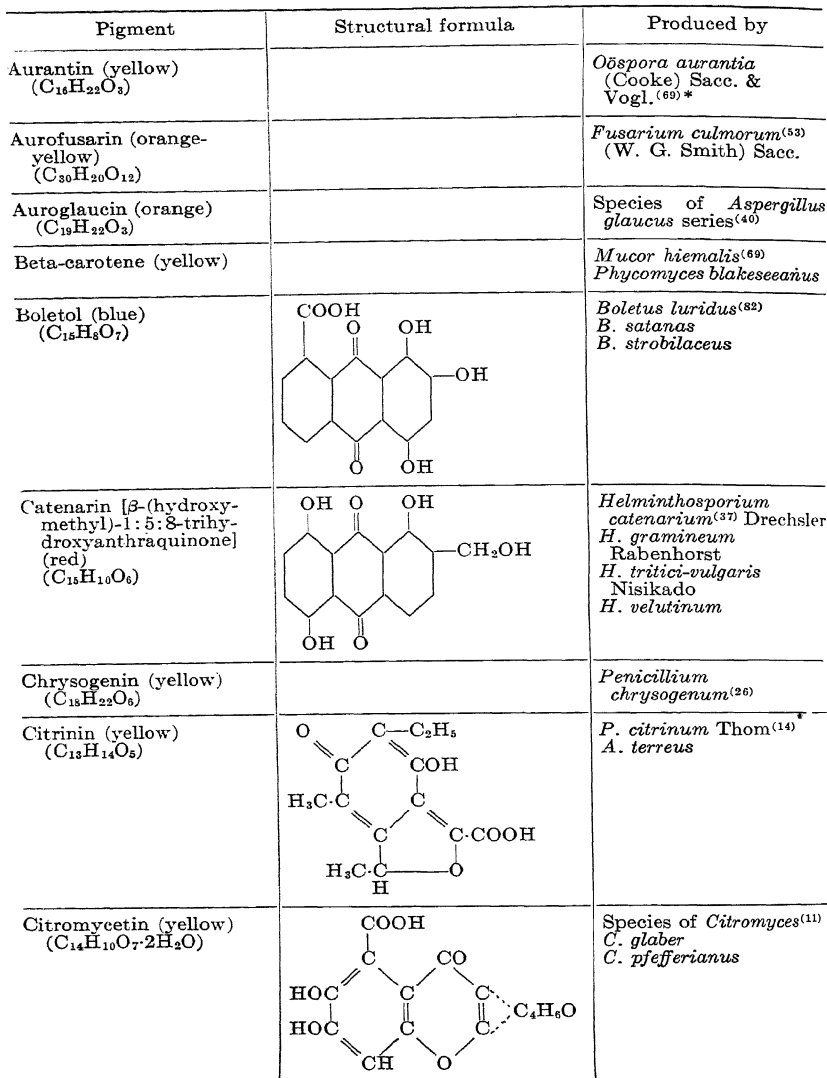 Pigment Structural formula Produced by
Aurantin (yellow)
(C₁₆H₂₂O₃)
Oöspora aurantia
(Cooke) Sacc. &
Vogl.(69)*
Aurofusarin (orange-
yellow)
(C₃₀H₂₀O₁₂)
Fusarium culmorum(53)
(W. G. Smith) Sacc.
Auroglaucin (orange)
(C₁₉H₂₂O₃)
Species of Aspergillus
glaucus series(40)
Beta-carotene (yellow)
Mucor hiemalis(69)
Phycomyces blakeseeanus
Boletol (blue)
(C₁₅H₈O₇)
COOH
O OH
—OH
O OH
Boletus luridus(82)
B. satanas
B. strobilaceus
Catenarin [β-(hydroxy-
methyl)-1:5:8-trihy-
droxyanthraquinone]
(red)
(C₁₅H₁₀O₆)
OH O OH
—CH₂OH
OH O
Helminthosporium
catenarium(37) Drechsler
H. gramineum
Rabenhorst
H. tritici-vulgaris
Nisikado
H. velutinum
Chrysogenin (yellow)
(C₁₈H₂₂O₆)
Penicillium
chrysogenum(26)
Citrinin (yellow)
(C₁₃H₁₄O₅)
O C—C₂H₅
C COH
H₃C·C C
C C·COOH
H₃C·C O
H
P. citrinum Thom(14)
A. terreus
Citromycetin (yellow)
(C₁₄H₁₀O₇·2H₂O)
COOH
C CO
HOC C C
C₄H₆O
HOC C C
CH O
Species of Citromyces(11)
C. glaber
C. pfefferianus